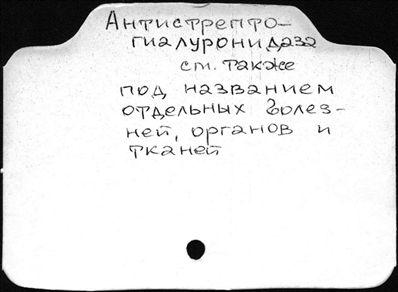 Антистрепто-
гиалуронидаза
см. также
под названием
отдельных болез-
ней, органов и
тканей